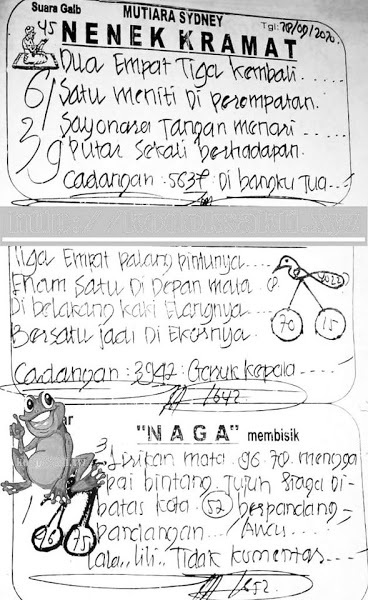 Suara Gaib
MUTIARA SYDNEY
45 NENEK KRAMAT
Dua Empat Tiga Kembali.....
6/ Satu meniti Di perempatan.
Sayonara Tangan menari.....
39 Putar Sekali berhadapan.
Cadangan : 5637 : Di bangku Tua...
Tiga Empat palang pintunya....
Enam Satu Di Depan mata
Di belakang kaki Elangnya
Bersatu jadi Di Ekornya.
70 15
Cadangan : 3942 : Geruk Kepala....
1642
"NAGA" membisik
mata 96.70. mengga
pai bintang. Tujuh Siaga Di-
batas Kota. 52 berpandang-
pandangan
96 75
lala, lili, Tidak Komentas....
1652